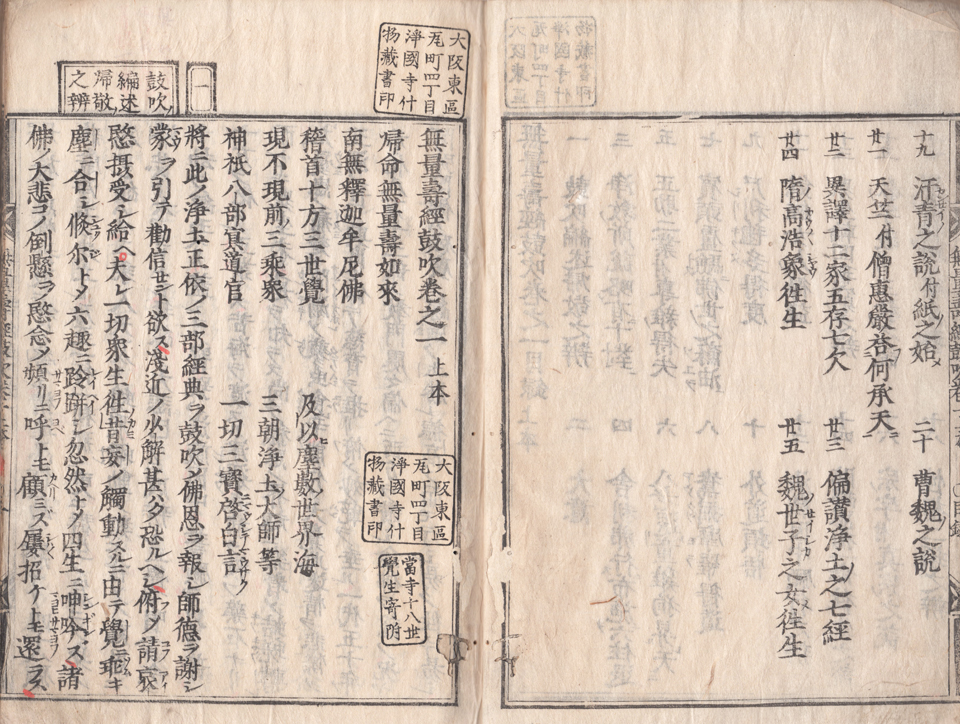 十九 汗青之說付紙之始 二十 曹魏之說
廿一 天竺付僧惠嚴咨何承天
廿二 異譯十二家五存七欠 廿三 偏讃淨土之七經
廿四 隋高浩象徃生 廿五 魏世子之女徃生
大阪東區
瓦町四丁目
淨國寺什
物藏書印
一
鼓吹
編述
歸敬
之辨
無量壽經鼓吹卷之一 上本
歸命無量壽如來
南無釋迦牟尼佛
稽首十方三世覺 及以塵數世界海
現不現前三乘衆 三朝淨土大師等
神祇八部冥道官 一切三寶啓白言
將ニ此ノ淨土正依ノ三部經典ヲ鼓吹ノ佛恩ヲ報シ師德ヲ謝シ
蒙ヲ引テ勸信セント欲ス淺近ノ少解甚ハタ恐ルヘシ俯ノ請哀
愍摂受シ給ヘ夫レ一切衆生徃昔妄ノ觸動スルニ由テ覺ニ乖キ
塵ニ合シ倐尓トメ六趣ニ跉跰シ忽然トメ四生ニ呻吟ス諸
佛ノ大悲コノ倒懸ヲ愍念メ頻リニ呼トモ顧ミズ屢招ケトモ還ラス
大阪東區
瓦町四丁目
淨國寺什
物藏書印
當寺十八世
覺生寄附